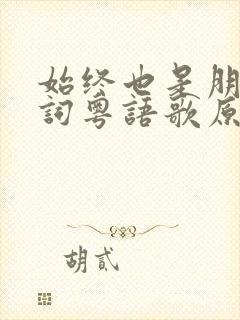 始终也是朋
詞粵語歌原
胡貳